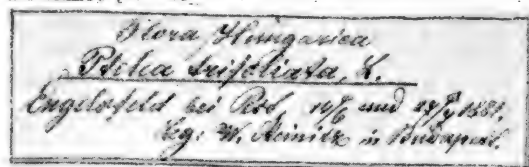 Flora Hungarica
Ptelea trifoliata, L.
Engelsfeld bei Pest und 1881.
leg: W. Steinitz in Budapest.